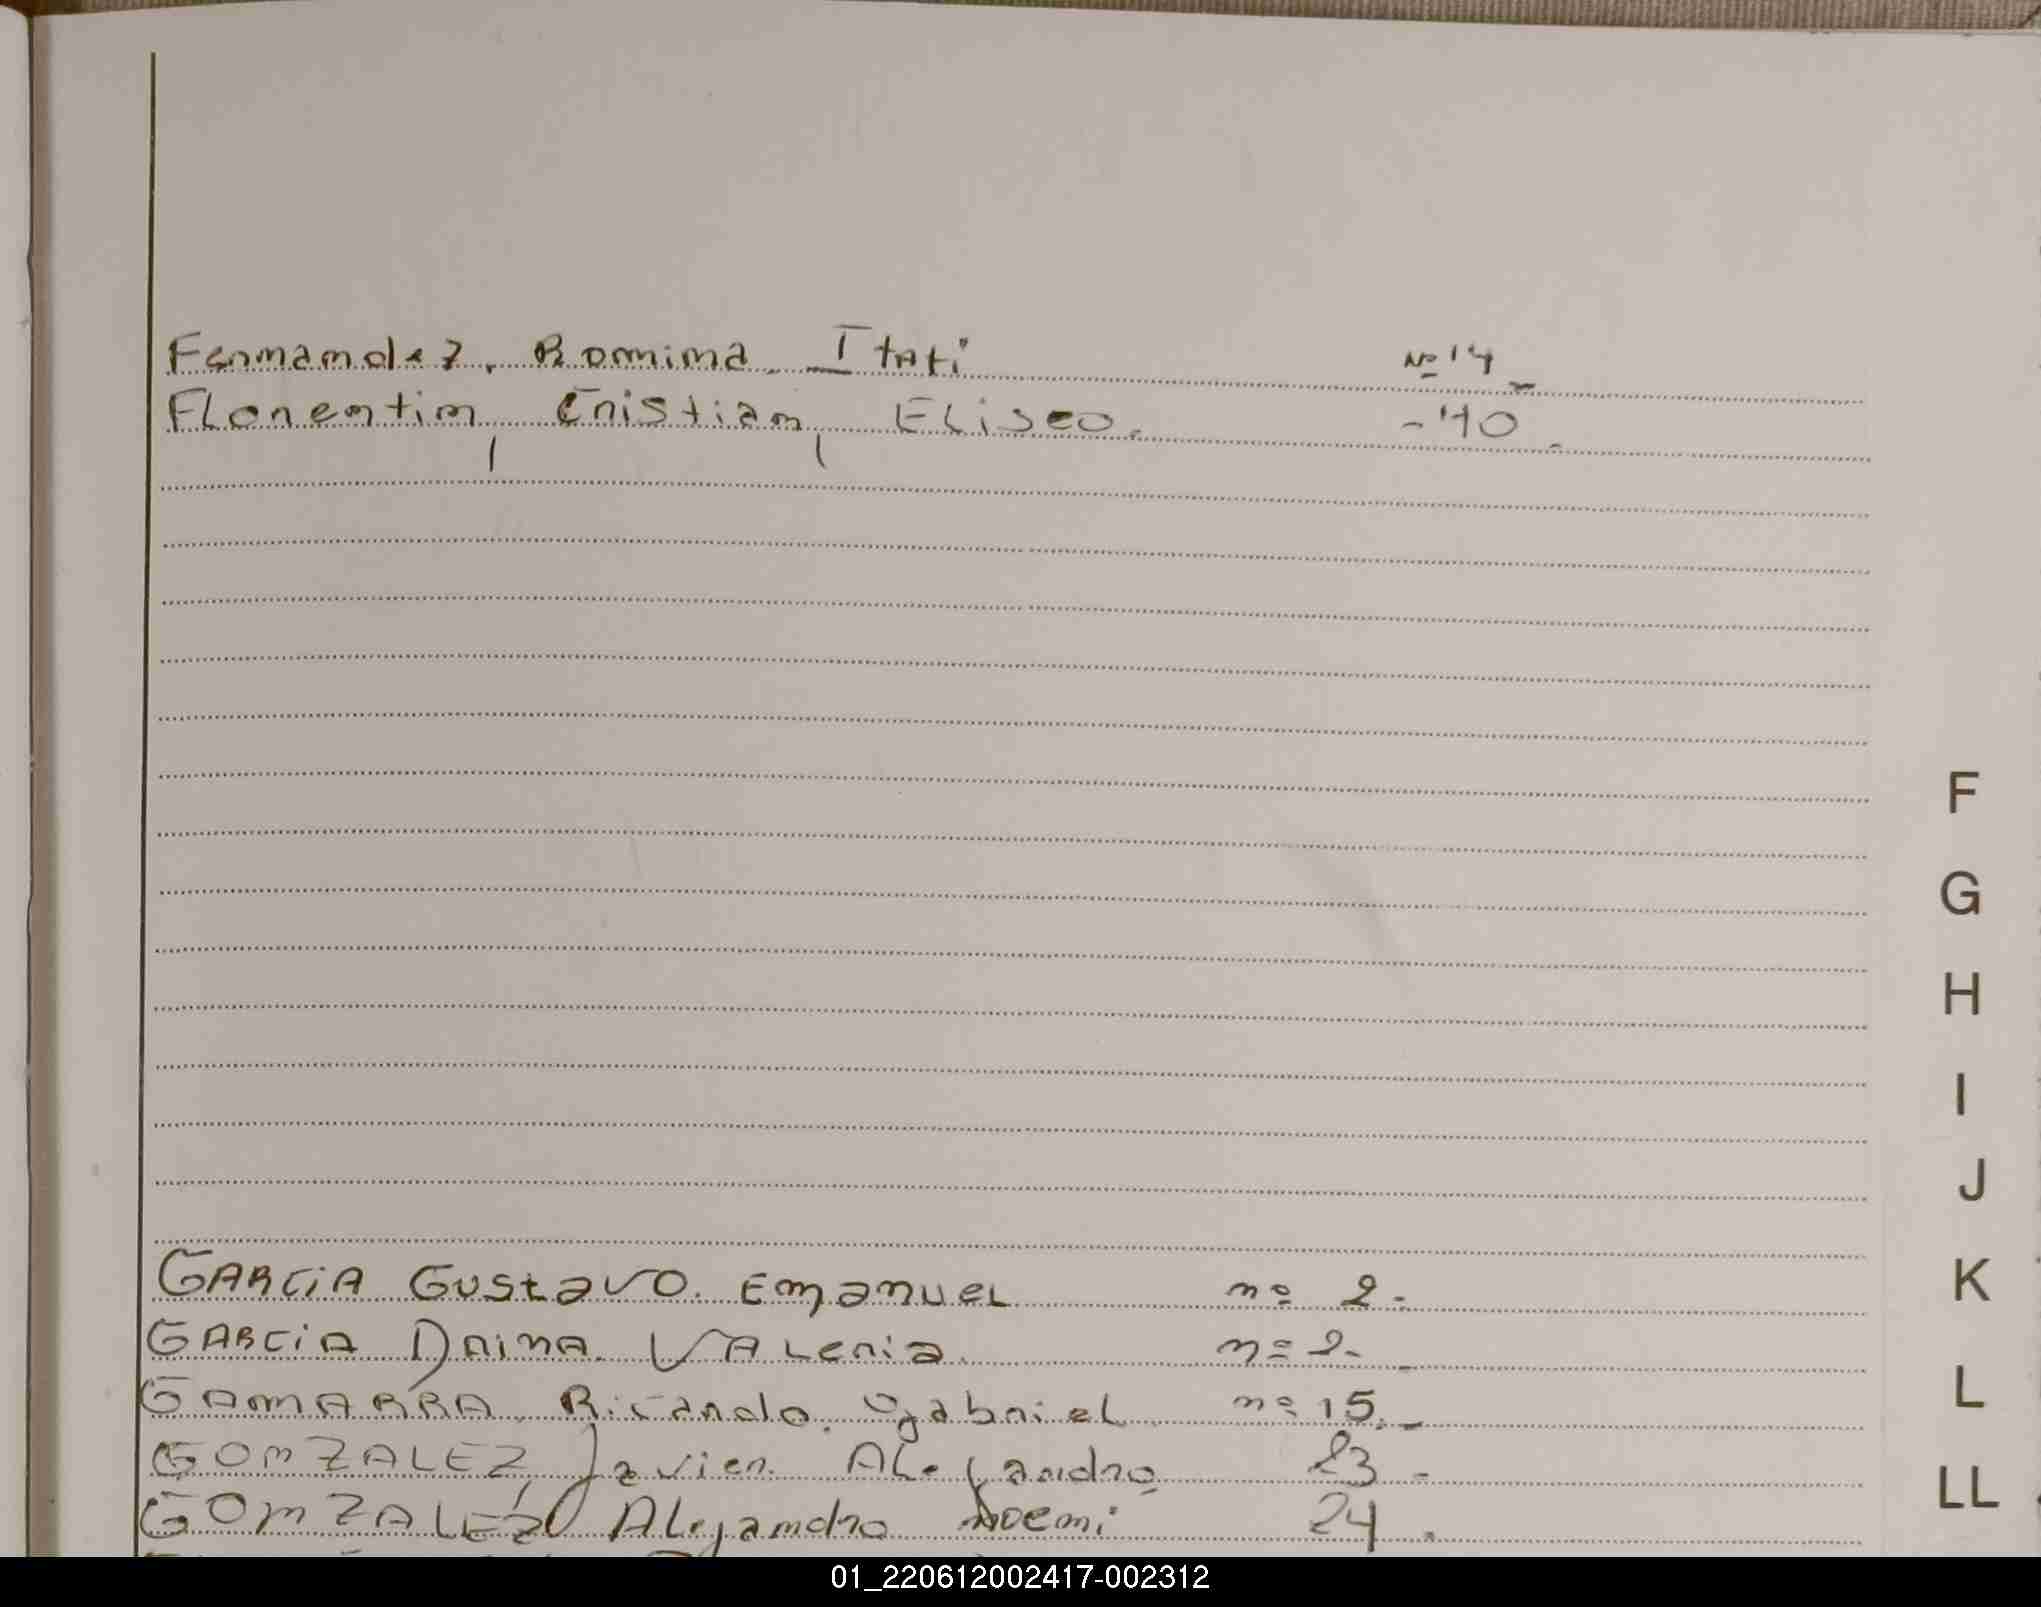 Fernandez, Romina Itati Nº 14
Florentin, Cristian, Eliseo. - 40.
F
G
H
I
J
GARCIA GUSTAVO. EMANUEL nº 2.
K
GARCIA DAINA. VALERIA nº 2.
L
GAMARRA. Ricardo. Gabriel nº 15.
GONZALEZ, Javier. Alejandro 23.
LL
GONZALEZ Alejandro Noemi 24.
01_220612002417-002312